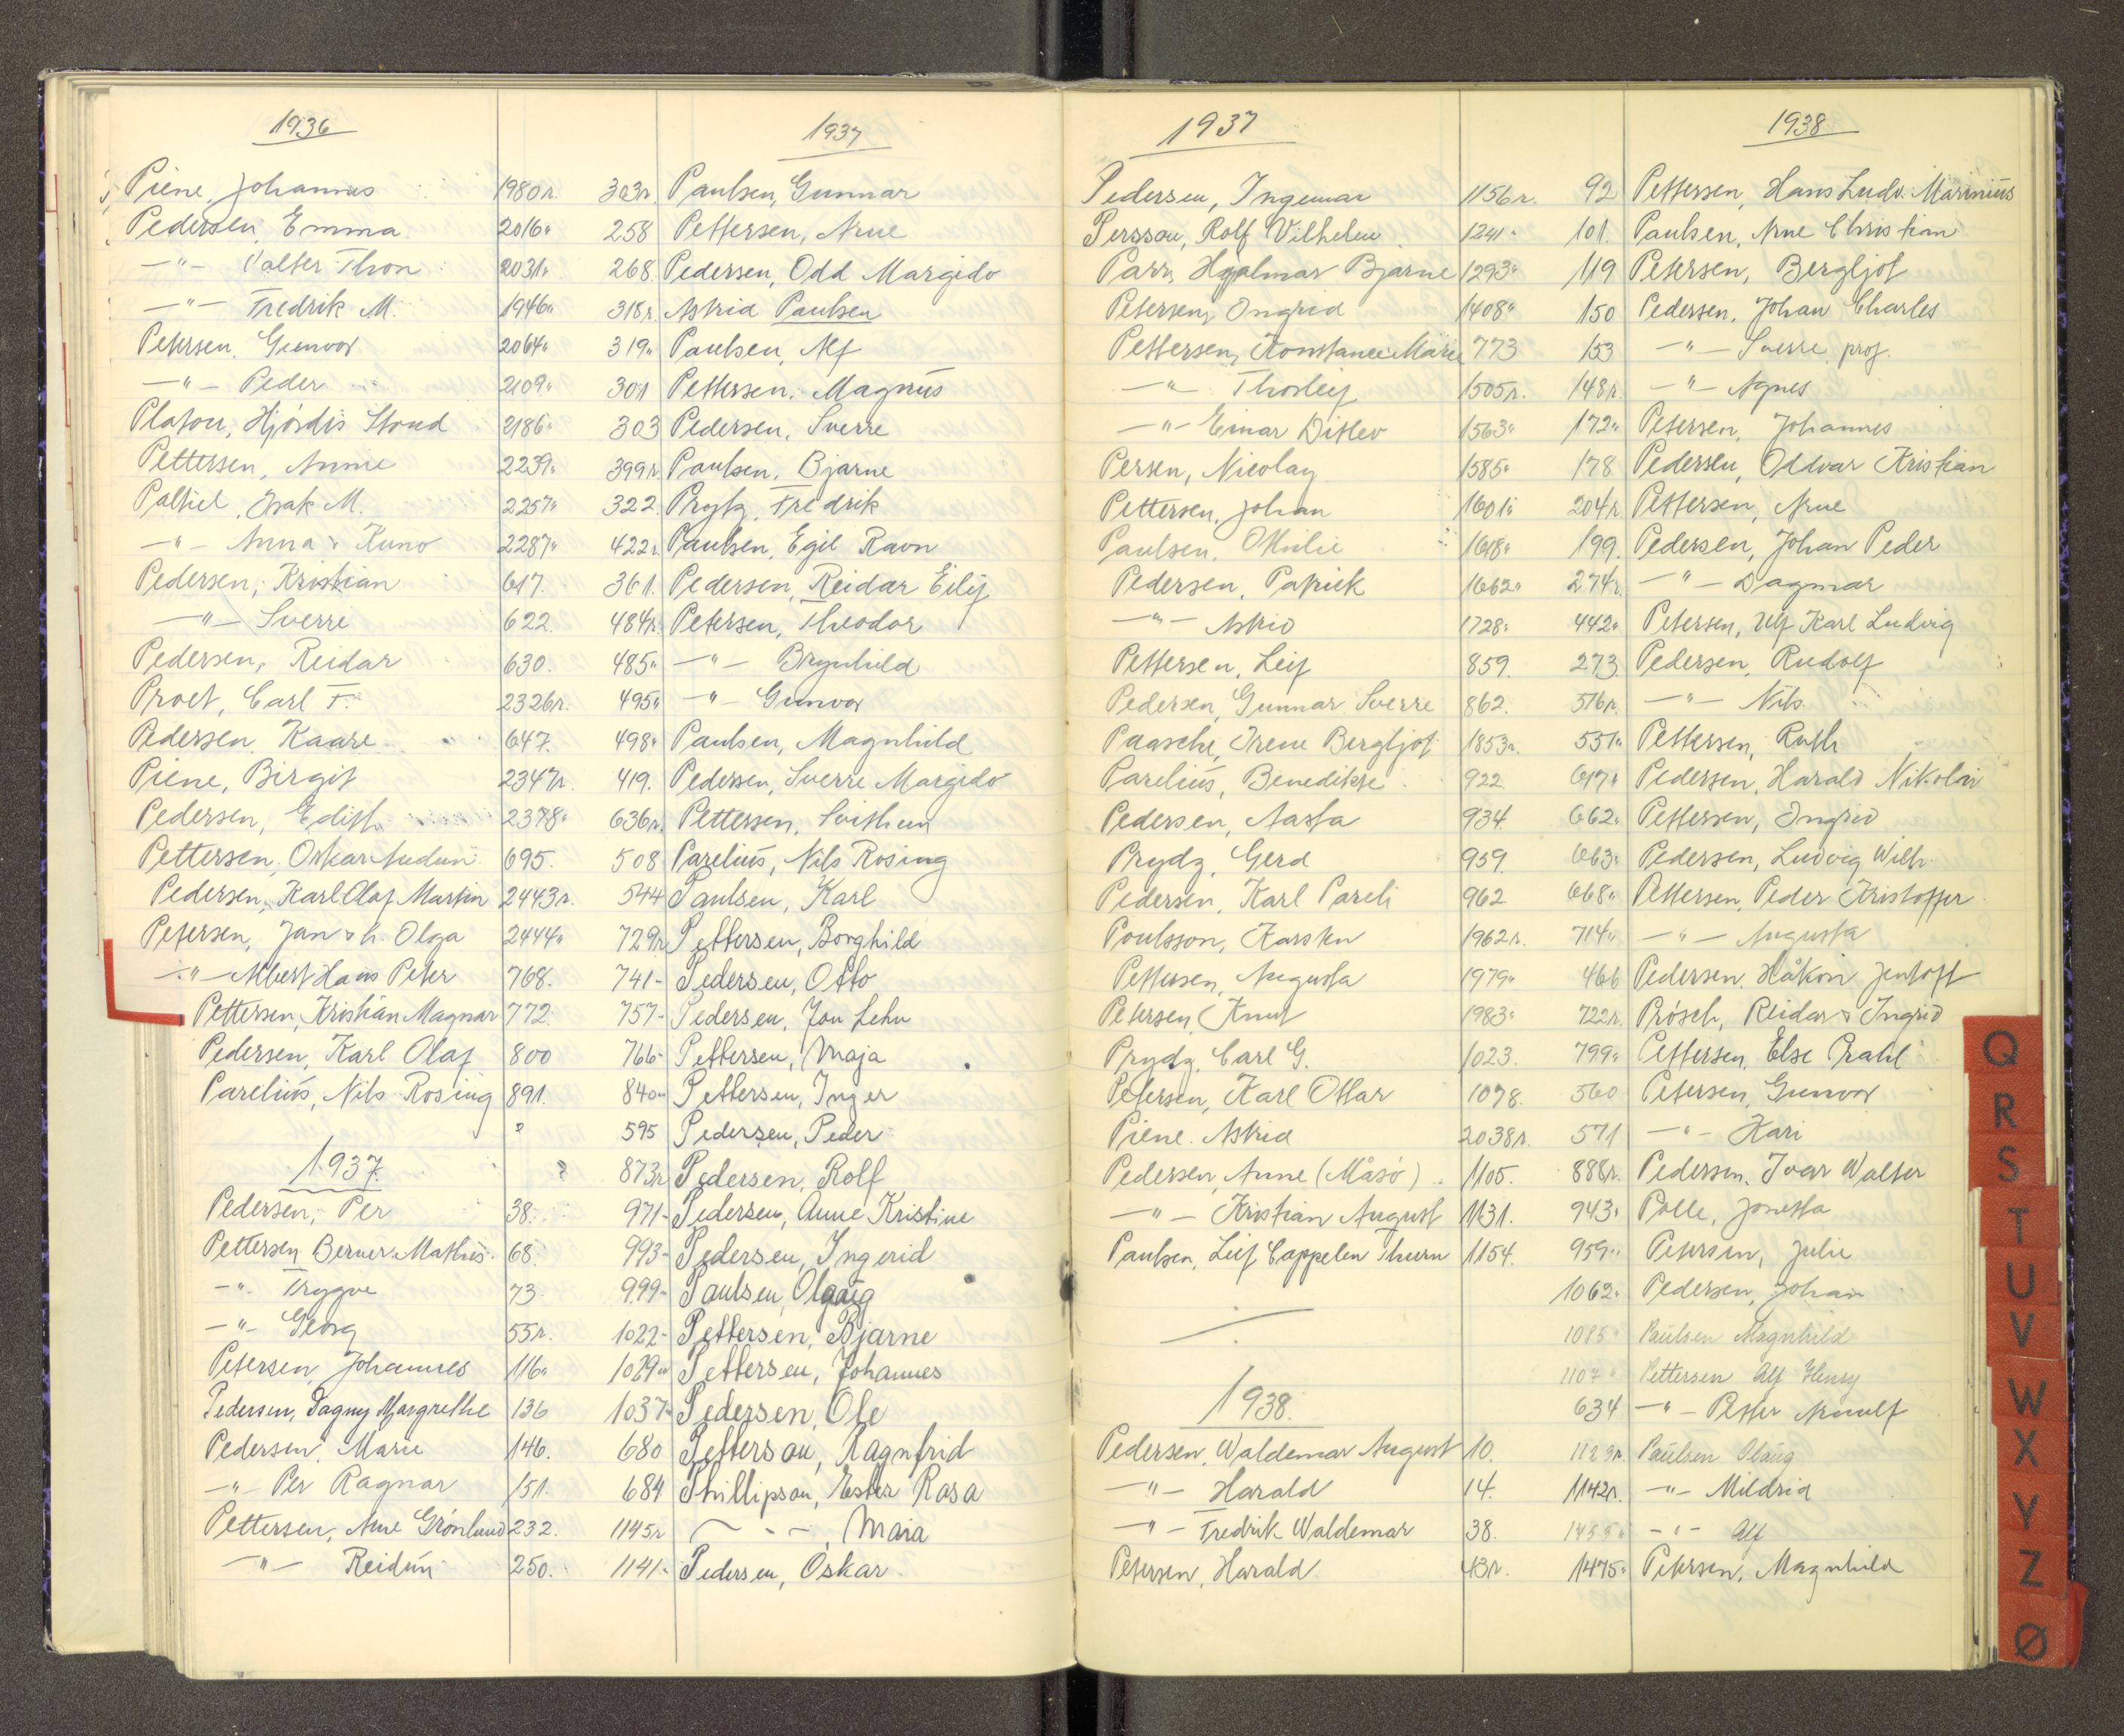 1936
Piene, Johannes 1980r.
Pedersen, Emma 2016"
-"- Valter Thon 2031"
-"- Fredrik M. 1946"
Petersen, Gunvor 2064"
-"- Peder 2109"
Platou, Hjördis Stoud 2186"
Pettersen, Annie 2239"
Paltiel, Isak M. 2257"
-"- Anna & Kuno 2287"
Pedersen, Kristian 617.
-"- Sverre 622.
Pedersen, Reidar 630.
Proet, Carl F. 2326r.
Pedersen, Kaare 647.
Piene, Birgit 2347r.
Pedersen, Edith 2378"
Pettersen, Oskar Audun 695.
Pedersen, Karl Olaf Martin 2443r.
Petersen, Jan & h. Olga 2444"
-"- Albert Hans Peter 768.
Pettersen, Kristian Magnar 772.
Pedersen, Karl Olaf 800
Parelius, Nils Rosing 891.
1937.
Pedersen, Per 38.
Pettersen, Berner Mathis. 68.
-"- Trygve 73
-"- Georg 55r.
Petersen, Johannes 116"
Pedersen, Dagny Margrethe 136
Pedersen, Marie 146.
-"- Per Ragnar 151.
Pettersen, Arne Grönlund 232.
-"- Reidun 250.
1937
303r. Paulsen, Gunnar
258 Pettersen, Arne
268. Pedersen, Odd Margido
318r. Astrid Paulsen
319" Paulsen, Alf
301 Pettersen, Magnus
303 Pedersen, Sverre
399r. Paulsen, Bjarne
322. Prytz, Fredrik
422r. Paulsen, Egil Ravn
361. Pedersen, Reidar Eilif
484r. Petersen, Theodor
485" -"- Brynhild
495" -"- Gunvor
498" Paulsen, Magnhild
419. Pedersen, Sverre Margido
636r. Pettersen, Svithun
508 Parelius, Nils Rosing
544 Paulsen, Karl
729r Pettersen, Borghild
741- Pedersen, Otto
757- Pedersen, Jon Lehn
766- Pettersen, Maja
840- Pettersen, Inger
595 Pedersen, Peder
873r Pedersen, Rolf
971- Pedersen, Anne Kristine
993- Pedersen, Ingerid
999- Paulsen, Olgaug
1022- Pettersen, Bjarne
1029" Pettersen, Johannes
1037- Pedersen, Ole
680 Petterson, Ragnfrid
684 Phillipson, Ester Rosa
1145r -"-, Maia
1141- Pedersen, Oskar
1937
Pedersen, Ingemar 1156r.
Persson, Rolf Vilhelm 1241"
Parr, Hjalmar Bjarne 1293"
Petersen, Ingrid 1408"
Pettersen, Konstance Marie 773
-"- Thorleif 1505r.
-"- Einar Ditlev 1563"
Persen, Nicolay 1585"
Pettersen, Johan 1601"
Paulsen, Otilie 1618"
Pedersen, Patrick 1662"
-"- Astrid 1728"
Pettersen, Leif 859.
Pedersen, Gunnar Sverre 862.
Paasche, Irene Bergljot 1853r.
Parelius, Benedikte 922
Pedersen, Aasta 934
Prydz, Gerd 959
Pedersen, Karl Pareli 962
Poulsson, Karsten 1962r.
Pettersen, Augusta 1979"
Petersen, Knut 1983"
Prydz, Carl G. 1023.
Petersen, Karl Ottar 1078.
Piene, Astrid 2038r.
Pedersen, Anne (Måsö) 1105.
-"- Kristian August 1131.
Paulsen, Leif Cappelen Thurn 1154.
1938.
Pedersen, Waldemar August 10.
-"- Harald 14.
-"- Fredrik Waldemar 38.
Petersen, Harald 43r.
1938
92 Pettersen, Hans Ludv. Marinius
101. Paulsen, Arne Christian
119 Petersen, Bergljot
150 Pedersen, Johan Charles
153 -"- Sverre, prof.
148r. -"- Agnes
172" Petersen, Johannes
178 Pedersen, Oddvar Kristian
204r. Pettersen, Arne
199. Pedersen, Johan Peder
274r. -"- Dagmar
442" Petersen, Ulf Karl Ludvig
273 Pedersen, Rudolf
516r. -"- Nils
531" Pettersen, Ruth
617" Pedersen, Harald Nikolai
662" Pettersen, Ingrid
663" Pedersen, Ludvig Wilh.
668" Pettersen, Peder Kristoffer
714" -"- Augusta
466 Pedersen, Håkon Jentoft
722r. Prösch, Reidar & Ingrid
799" Pettersen, Else Prahl
560 Petersen, Gunvor
571 -"- Kari
888r. Pedersen, Ivar Walter
943" Polle, Jonetta
959" Petersen, Julie
1062" Pedersen, Johan
1085" Paulsen Magnhild
1107" Pettersen Alf Henry
634 -"- Petter Arnulf
1123r. Paulsen Olaug
1142r. -"- Mildrid
1455" -"- Alf
1475" Petersen, Magnhild
Q
R
S
T
U
V
W
X
Y
Z
Ø